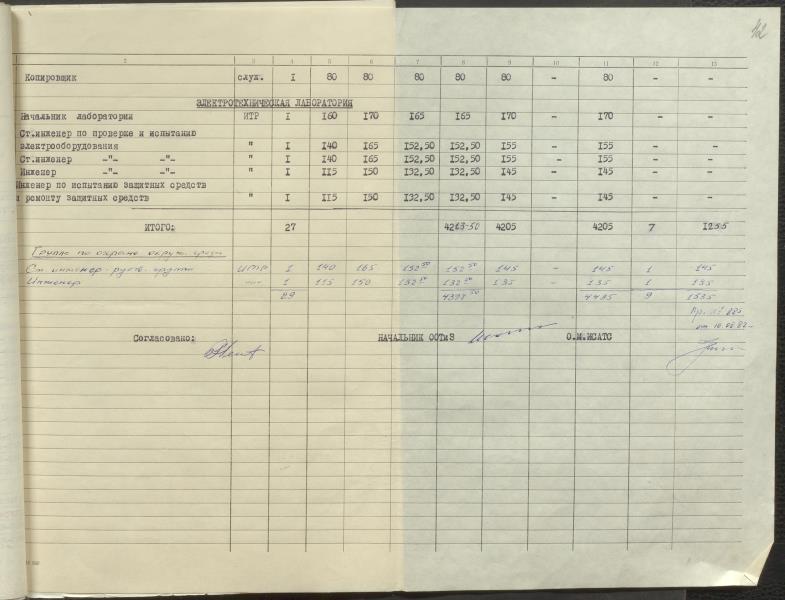 42
2 3 4 5 6 7 8 9 10 11 12 13
Копировщик служ. I 80 80 80 80 80 - 80 - -
ЭЛЕКТРОТЕХНИЧЕСКАЯ ЛАБОРАТОРИЯ
Начальник лаборатории ИТР I I60 I70 I65 I65 I70 - I70 - -
Ст.инженер по проверке и испытанию
электрооборудования " I I40 I65 I52,50 I52,50 I55 - I55 - -
Ст.инженер -"- -"- " I I40 I65 I52,50 I52,50 I55 - I55 - -
Инженер -"- -"- " I II5 I50 I32,50 I32,50 I45 - I45 - -
Инженер по испытанию защитных средств
и ремонту защитных средств " I II5 I50 I32,50 I32,50 I45 - I45 - -
ИТОГО: 27 4213-50 4205 4205 7 1255
Группа по охране окруж. среды
Ст. инженер-руков. группы ИТР 1 140 165 152 50 152 50 145 - 145 1 145
Инженер -"- 1 115 150 132 50 132 50 135 - 135 1 135
29 4485 9 1535
Пр. № 885
от 10.08.82
Согласовано: НАЧАЛЬНИК ООТиЗ О.М.ИСАТС